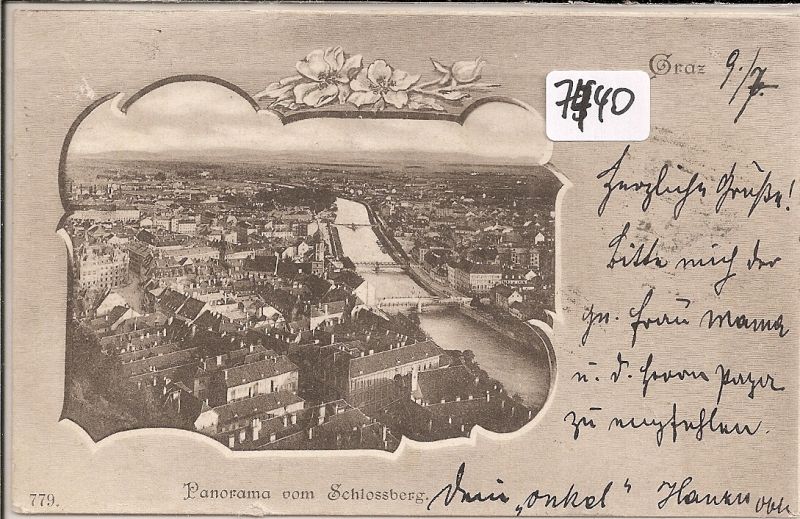 Graz 9./7.
7 40
Herzliche Grüße!
Bitte mich der
gn. Frau Mama
u. d. Herrn Papa
zu empfehlen.
779.
Panorama vom Schlossberg.
Dein „Onkel"